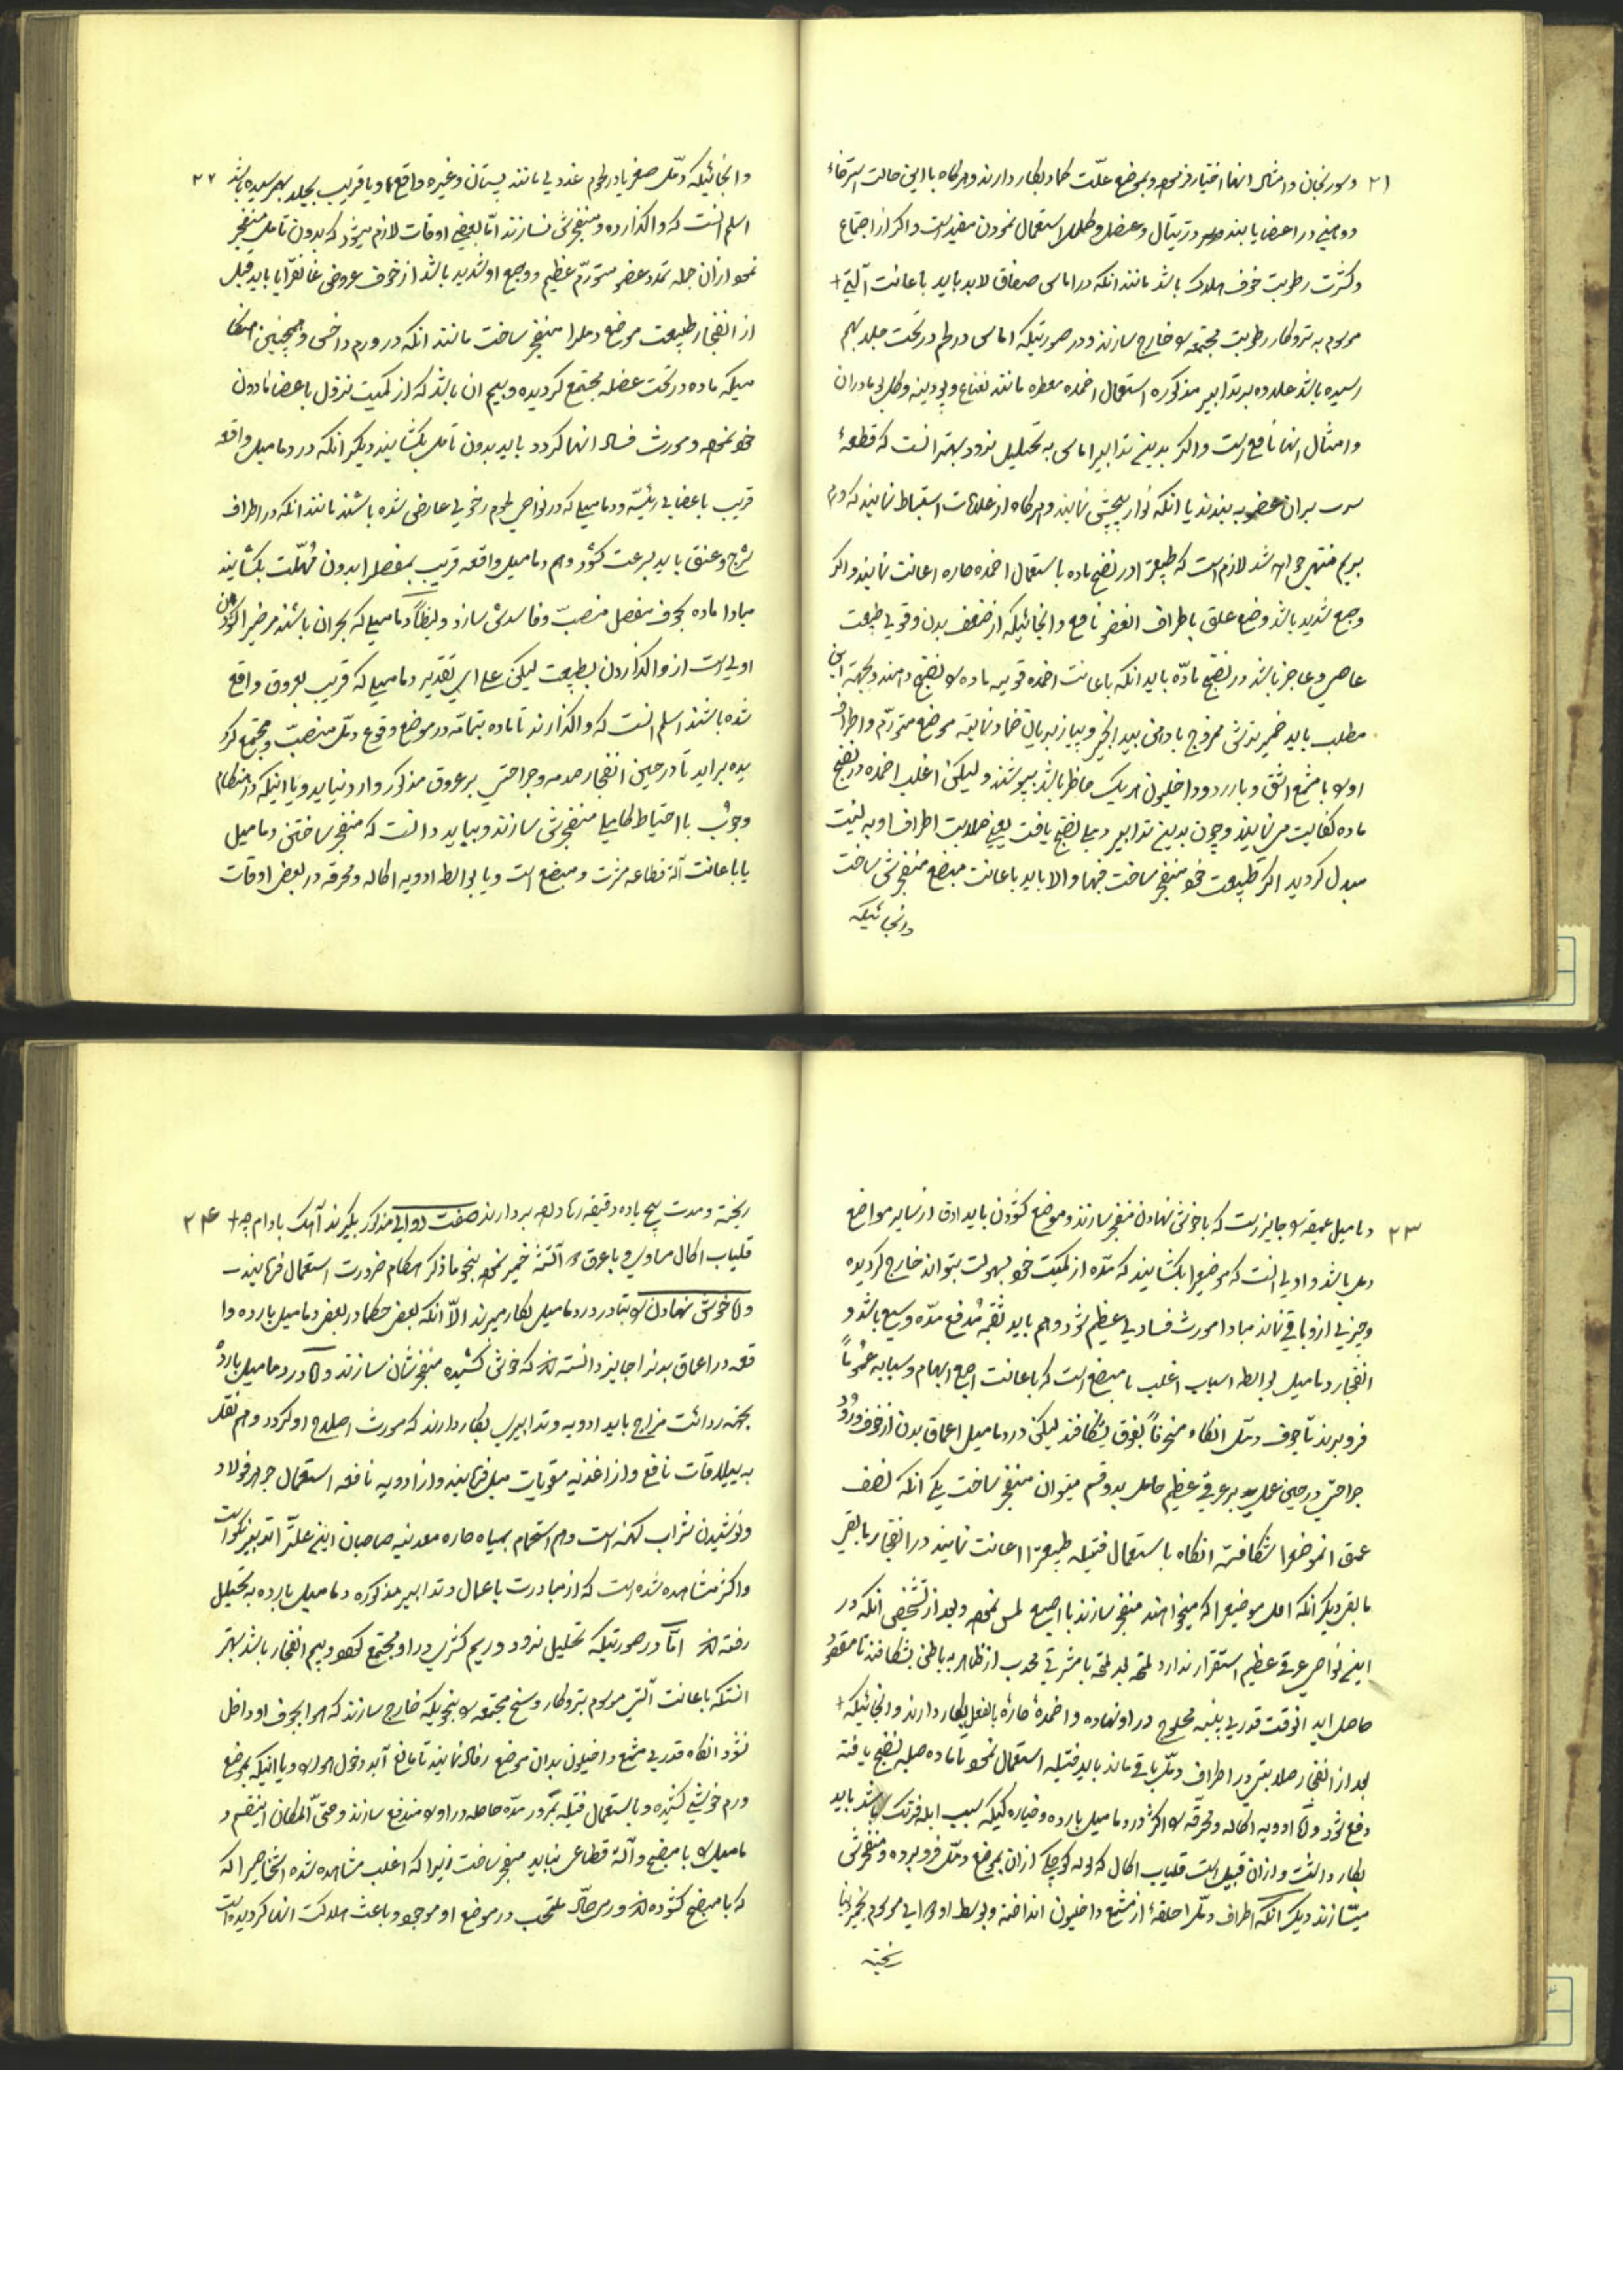 ۲۱
و سورنجان و امثال انها اختیار فرموده و بموضع علّت کماد بکار دارند و هرگاه با این حالت استرخاء
و وهنی در اعضا یابند در و عضل و طلا استعمال نمودن مفید است و اگر از اجتماع
و کثرت رطوبت خوف هلاکت باشد مانند انکه در اماس صفاق لابد باید باعانت آلتی
موسوم به تروکار رطوبت مجتمعه را خارج سازند و در صورتیکه اماس در لحم در تحت جلد بهم
رسیده باشد علاوه بر تدابیر مذکوره استعمال اضمده معطره مانند نعناع و پودینه و
و امثال انها نافع است و اگر بدین تدابیر اماس به تحلیل نرود بهتر انست که قطعهٔ
سرب بران عضو به بندند یا انکه نوار پیچش نمایند و هرگاه از علامات استنباط نمایند که ورم
بریم منتهی خواهد شد لازم است که طبیعترا در نضج ماده باستعمال اضمده حاره اعانت نمایند و اگر
وجع شدید باشد وضع علق باطراف العضو نافع و انجائیکه از ضعف بدن و قوی طبیعت
عاصی و عاجز باشد در نضج مادّه باید انکه باعانت اضمده قویه ماده را نضج دهند و بجهة این
مطلب باید خمیر ترش ممزوج با روغن بید انجیر و پیاز بریان ضماد نمایند موضع متورّم و اطراف
او را با مشمع اشق و یا دیاخیلون هر یک حاضر باشد بپوشند و لیکن اغلب اضمده در نضج
ماده کفایت می نمایند و چون بدین تدابیر دمل نضج یافت یعنی صلابت اطراف او به لینت
مبدل گردید اگر طبیعت خود منفجر ساخت فبها والا باید باعانت مبضع منفجرش ساخت
وانجائیکه
۲۲
و انجائیکه دمّل صغیر یا در لحوم غددی مانند پستان و غیره واقع و یا قریب بجلد بهم رسیده باشد
اسلم انست که واگذارده و منفجرش نسازند امّا بعضی اوقات لازم میشود که بدون تامل منفجر
نمود ازان جمله تمدد عضو متورّم عظیم و وجع او شدید باشد از خوف عروض غانغرایا باید قبل
از انفجار طبیعت موضع دملرا منفجر ساخت مانند انکه در ورم داخس و همچنین هنگا
میکه ماده در تحت عضله مجتمع گردیده و بیم ان باشد که از کمیت نزول باعضا مادون
خود نموده و مورث فساد انها گردد باید بدون تامل بگشایند دیگر انکه در دمامیل واقعه
قریب باعضای رئیسّه و دمامیلی که در نواحی لحوم رخوی عارض شده باشند مانند انکه در اطراف
شرج و عنق باید بسرعت گشود و هم دمامیل واقعه قریب بمفصلرا بدون مُهلّت بگشایند
مبادا ماده بجوف مفصل منصبّ و فاسدش سازد و ایضاً دمامیلی که بحران باشند مرض را گشودن
اولی است از واگذاردن بطبیعت لیکن علی ای تقدیر دمامیلی که قریب بعروق واقع
شده باشند اسلم انست که واگذارند تا ماده بتمامّه در موضع وقوع دمّل منصبّ و مجتمع گر
یده براید تا در حین انفجار صدمه و جراحتی بر عروق مذکور وارد نیاید و یا اینکه در هنگام
وجوب با احتیاط کاملی منفجرش سازند و بباید دانست که منفجر ساختن دمامیل
یا باعانت آلة قطاعه مثل نشتر و مبضع است و یا بواسطه ادویه اکاله و محرقه در بعض اوقات
۲۳
دمامیل عمیقه را جایز است که با خوش نهادن منفجر سازند و موضع گشودن باید ادق از سایر مواضع
دمل باشد و اولی انست که موضعیرا بگشایند که مدّه از کمیت خود بسهولت بتواند خارج گردیده
و چیزی ازو باقی نماند مبادا مورث فسادی عظیم شود و هم باید ثقبه مُدفع مدّه وسیع باشد و
انفجار دمامیل بواسطه اسباب اغلب با مبضع است که باعانت اصبع ابهام و سبابه عموماً
فرو برند تا جوف دمّل انگاه منحرفاً بفوق بشکافند لیکن در دمامیل اعماق بدن از خوف ورُود
جراحتی در حین عمل بر عرقی عظیم حامل بدو قسم میتوان منفجر ساخت یکی انکه نصف
عمق انموضعرا شکافته انگاه باستعمال فتیله طبیعترا اعانت نمایند در انفجار مابقی
مابقی دیگر انکه اول موضعیرا که میخواهند منفجر سازند با اصبع لمس نموده و بعد از تشخیص انکه در
این نواحی عرقی عظیم استقرار ندارد لمحه بد لمحه با مشرتی محدب از ظاهر به باطن بشکافند تا مقصُود
حاصل اید انوقت قدری پنبه محلوج در او نهاده و اضمدهٔ حارهٔ بالفعل بکار دارند و انجائیکه
بعد از انفجار صلابتی در اطراف دمّل باقی ماند باید فتیله استعمال نمود تا ماده صلبه نضج یافته
دفع شود و امّا ادویه اکاله و محرّقه را اکثر در دمامیل بارده و خیارکیکه بسبب ابله فرنک باشد باید
بکار داشت و ازان قبیل است قلیاب اکال که لوله کوچکی ازان بموضع دمّل فرو برده و منفجرش
میسّازند دیگر انکه اطراف دمّلرا حلقهٔ از مشمع داخلیون انداخته و بوسط او دوای موسوم بخمیر
ریخته
۲۴
ریخته و مدت پنج یا ده دقیقه رها و بعد بردارند صفت دوای مذکور بگیرند آهک بادام
قلیاب اکال مساوی و با عرق آتشه خمیر نموده بنحو ماذکر هنگام ضرورت استعمال فرمایند
و امّا خوش نهادن را بنادر در دمامیل بکار میبرند الاّ انکه بعض حکما در بعض دمامیل بارده وا
قعه در اعماق بدنرا جایز دانسته اند که خوش کشیده منفجرشان سازند و امّا در دمامیل باردهْ
بجهة ردائت مزاج باید ادویه و تدابیری بکار دارند که مورث اصلاح او گردد و هم نقل
به ییلاقات نافع و از اغذیه مقویات میل فرمایند و از ادویه نافعه استعمال جوهر فولاد
و نوشیدن شراب کهنه است و هم استحمام بمیاه حاره معدنیه صاحبان این علّترا تدبیر نیکو است
و اکثر مشاهده شده است که از مبادرت باعمال و تدابیر مذکوره دمامیل بارده به تحلیل
رفته اند امّا در صورتیکه تحلیل نرود و ریم کثیری در او مجتمع گردد و بیم انفجار باشد بهتر
انستکه باعانت آلتی موسوم بتروکار وسخ مجتمعه را بنحویکه خارج سازند که هوا بجوف او داخل
نشود انگاه قدری مشمع داخیلون بدان موضع رفاده نمایند تا مانع آید دخول هوا را و یا اینکه بموضع
ورم خوشی کشیده و باستعمال فتیله بمُرور مدّه حاصله در او را مندفع سازند و حتی المکان اینقسم د
مامیل را با مبضع و آلة قطاعی نباید منفجر ساخت زیرا که اغلب مشاهده شده اشخاصیرا که
که با مبضع گشوده اند ورمی حادّ ملتهب در موضع او موجود و باعث هلاکت انها گردیده است